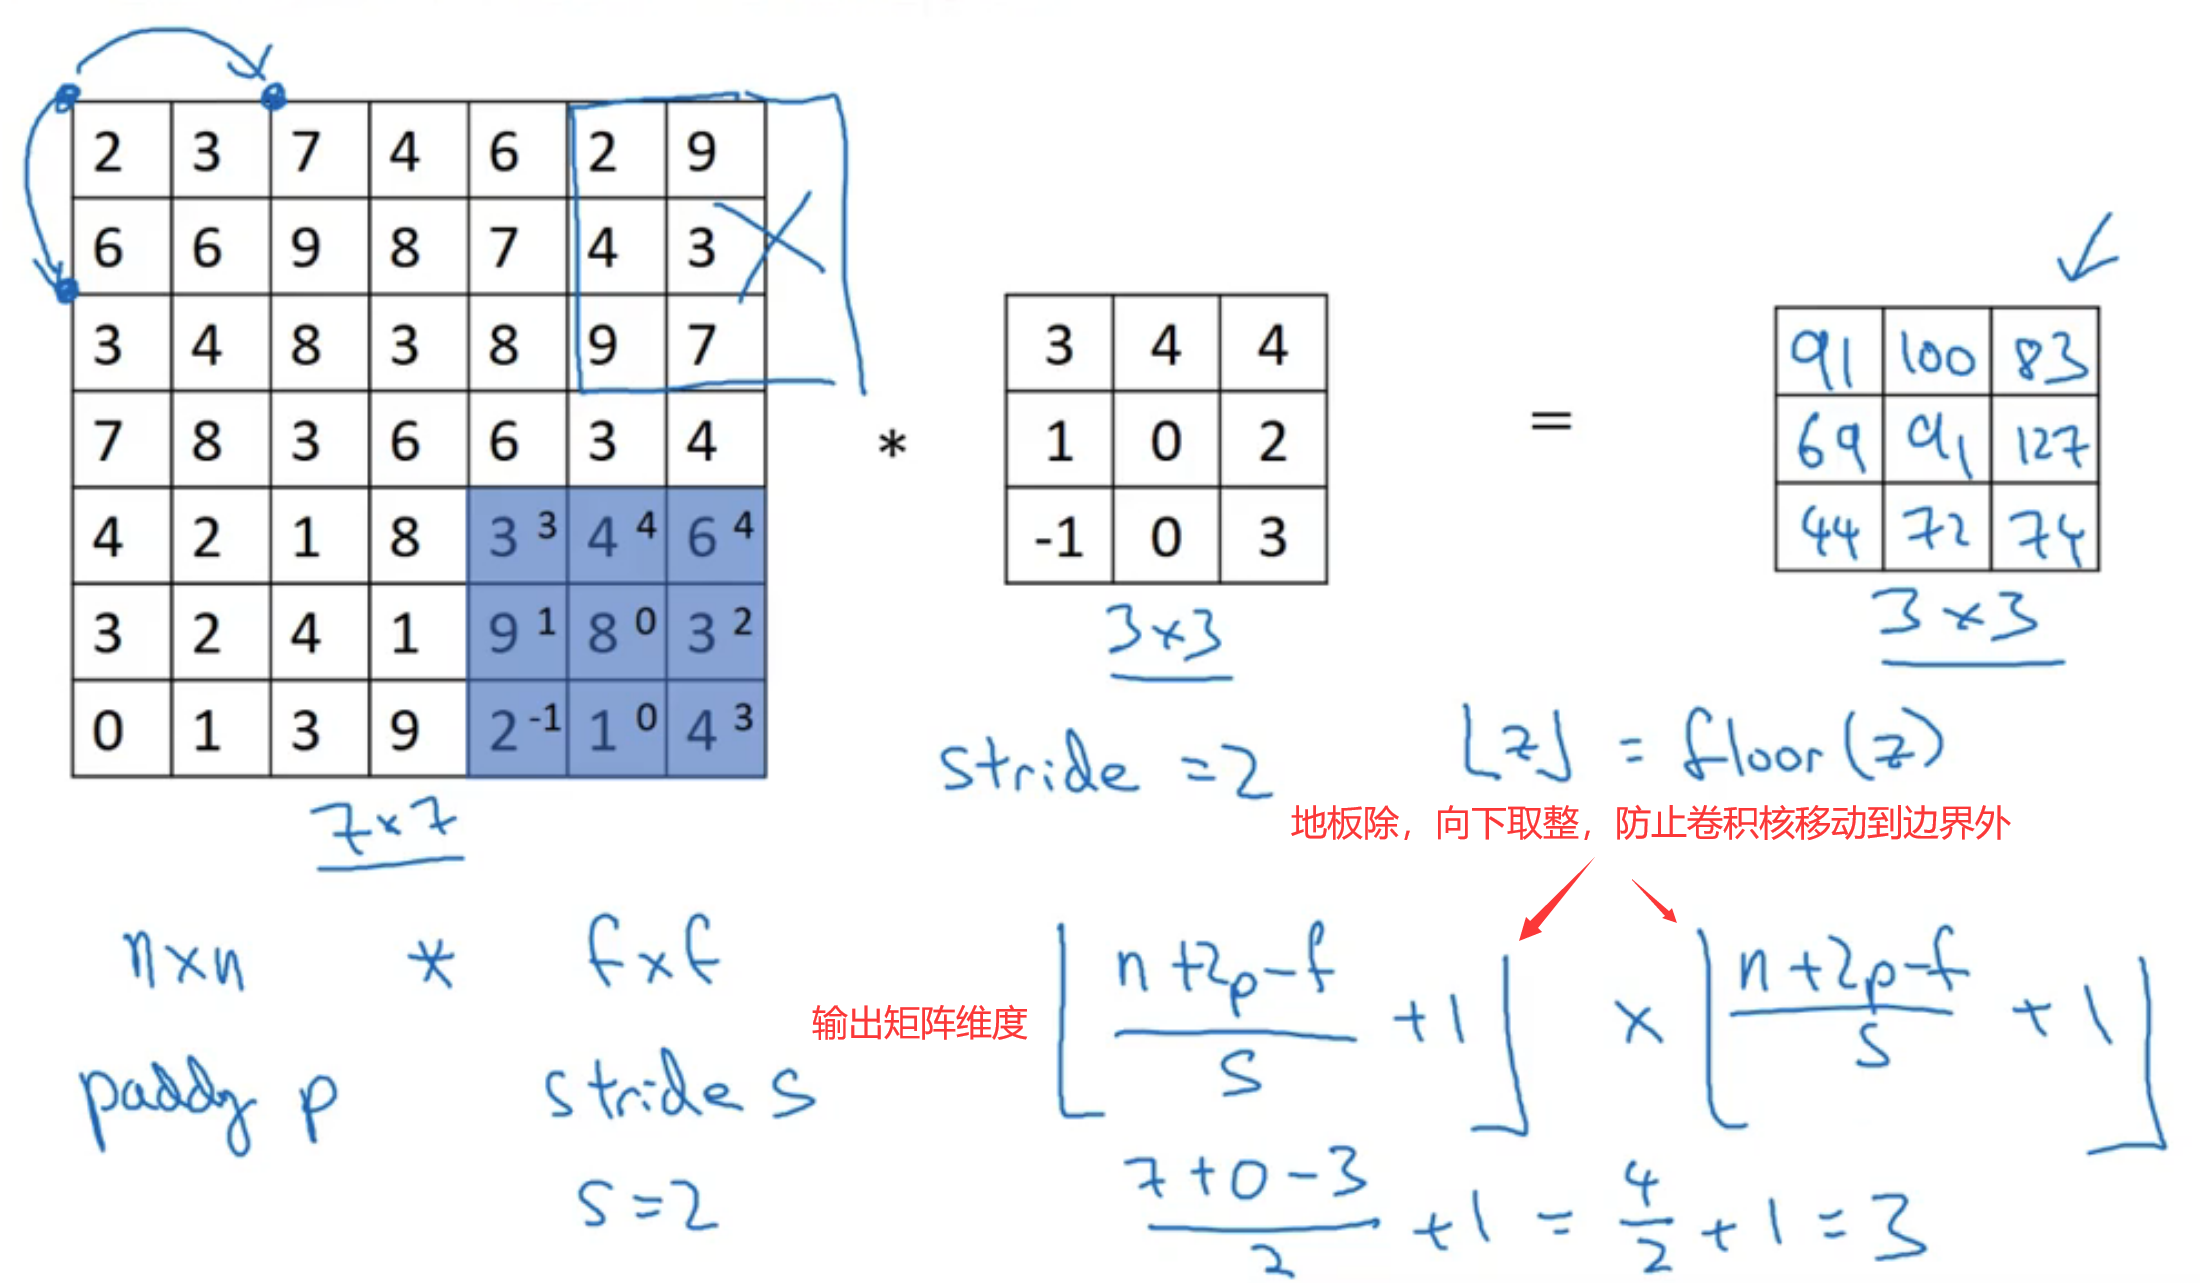 2 3 7 4 6 2 9
6 6 9 8 7 4 3
3 4 8 3 8 9 7
7 8 3 6 6 3 4
4 2 1 8 3 3 4 4 6 4
3 2 4 1 9 1 8 0 3 2
0 1 3 9 2 -1 1 0 4 3
7×7
*
3 4 4
1 0 2
-1 0 3
3×3
=
91 100 83
69 91 127
44 72 74
3×3
stride =2
⌊z⌋ = floor(z)
地板除，向下取整，防止卷积核移动到边界外
n×n * f×f
padding p stride s
s=2
输出矩阵维度
⌊(n+2p-f)/s +1⌋ × ⌊(n+2p-f)/s +1⌋
(7+0-3)/2 +1 = 4/2 +1 = 3